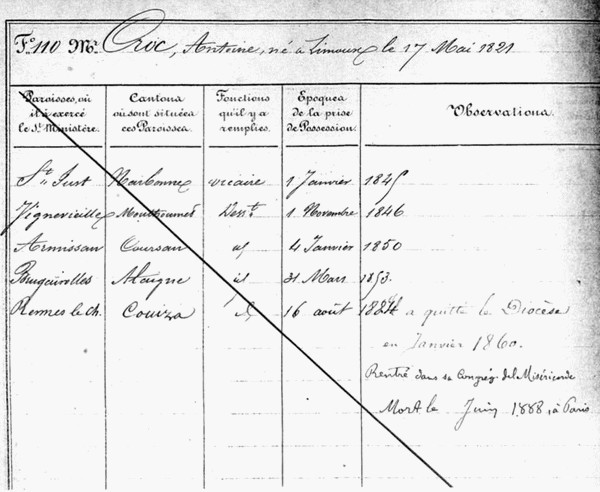 F.º 110 Mr. Croc, Antoine, né à Limoux le 17 Mai 1821
Paroisses, où il a exercé le St. Ministère. Cantons où sont situées ces Paroisses. Fonctions qu'il y a remplies. Epoques de la prise de Possession. Observations.
St. Just Narbonne vicaire 1 Janvier 1845
Vignevieille Mouthoumet Dess.t 1 Novembre 1846
Armissan Coursan id 4 Janvier 1850
Brugairolles Alaigne id 31 Mars 1853.
Rennes le Ch. Couiza id 16 août a quitté le Diocèse
en Janvier 1860.
Rentré dans sa Congrég. de la Miséricorde
Mort le Juin 1888, à Paris